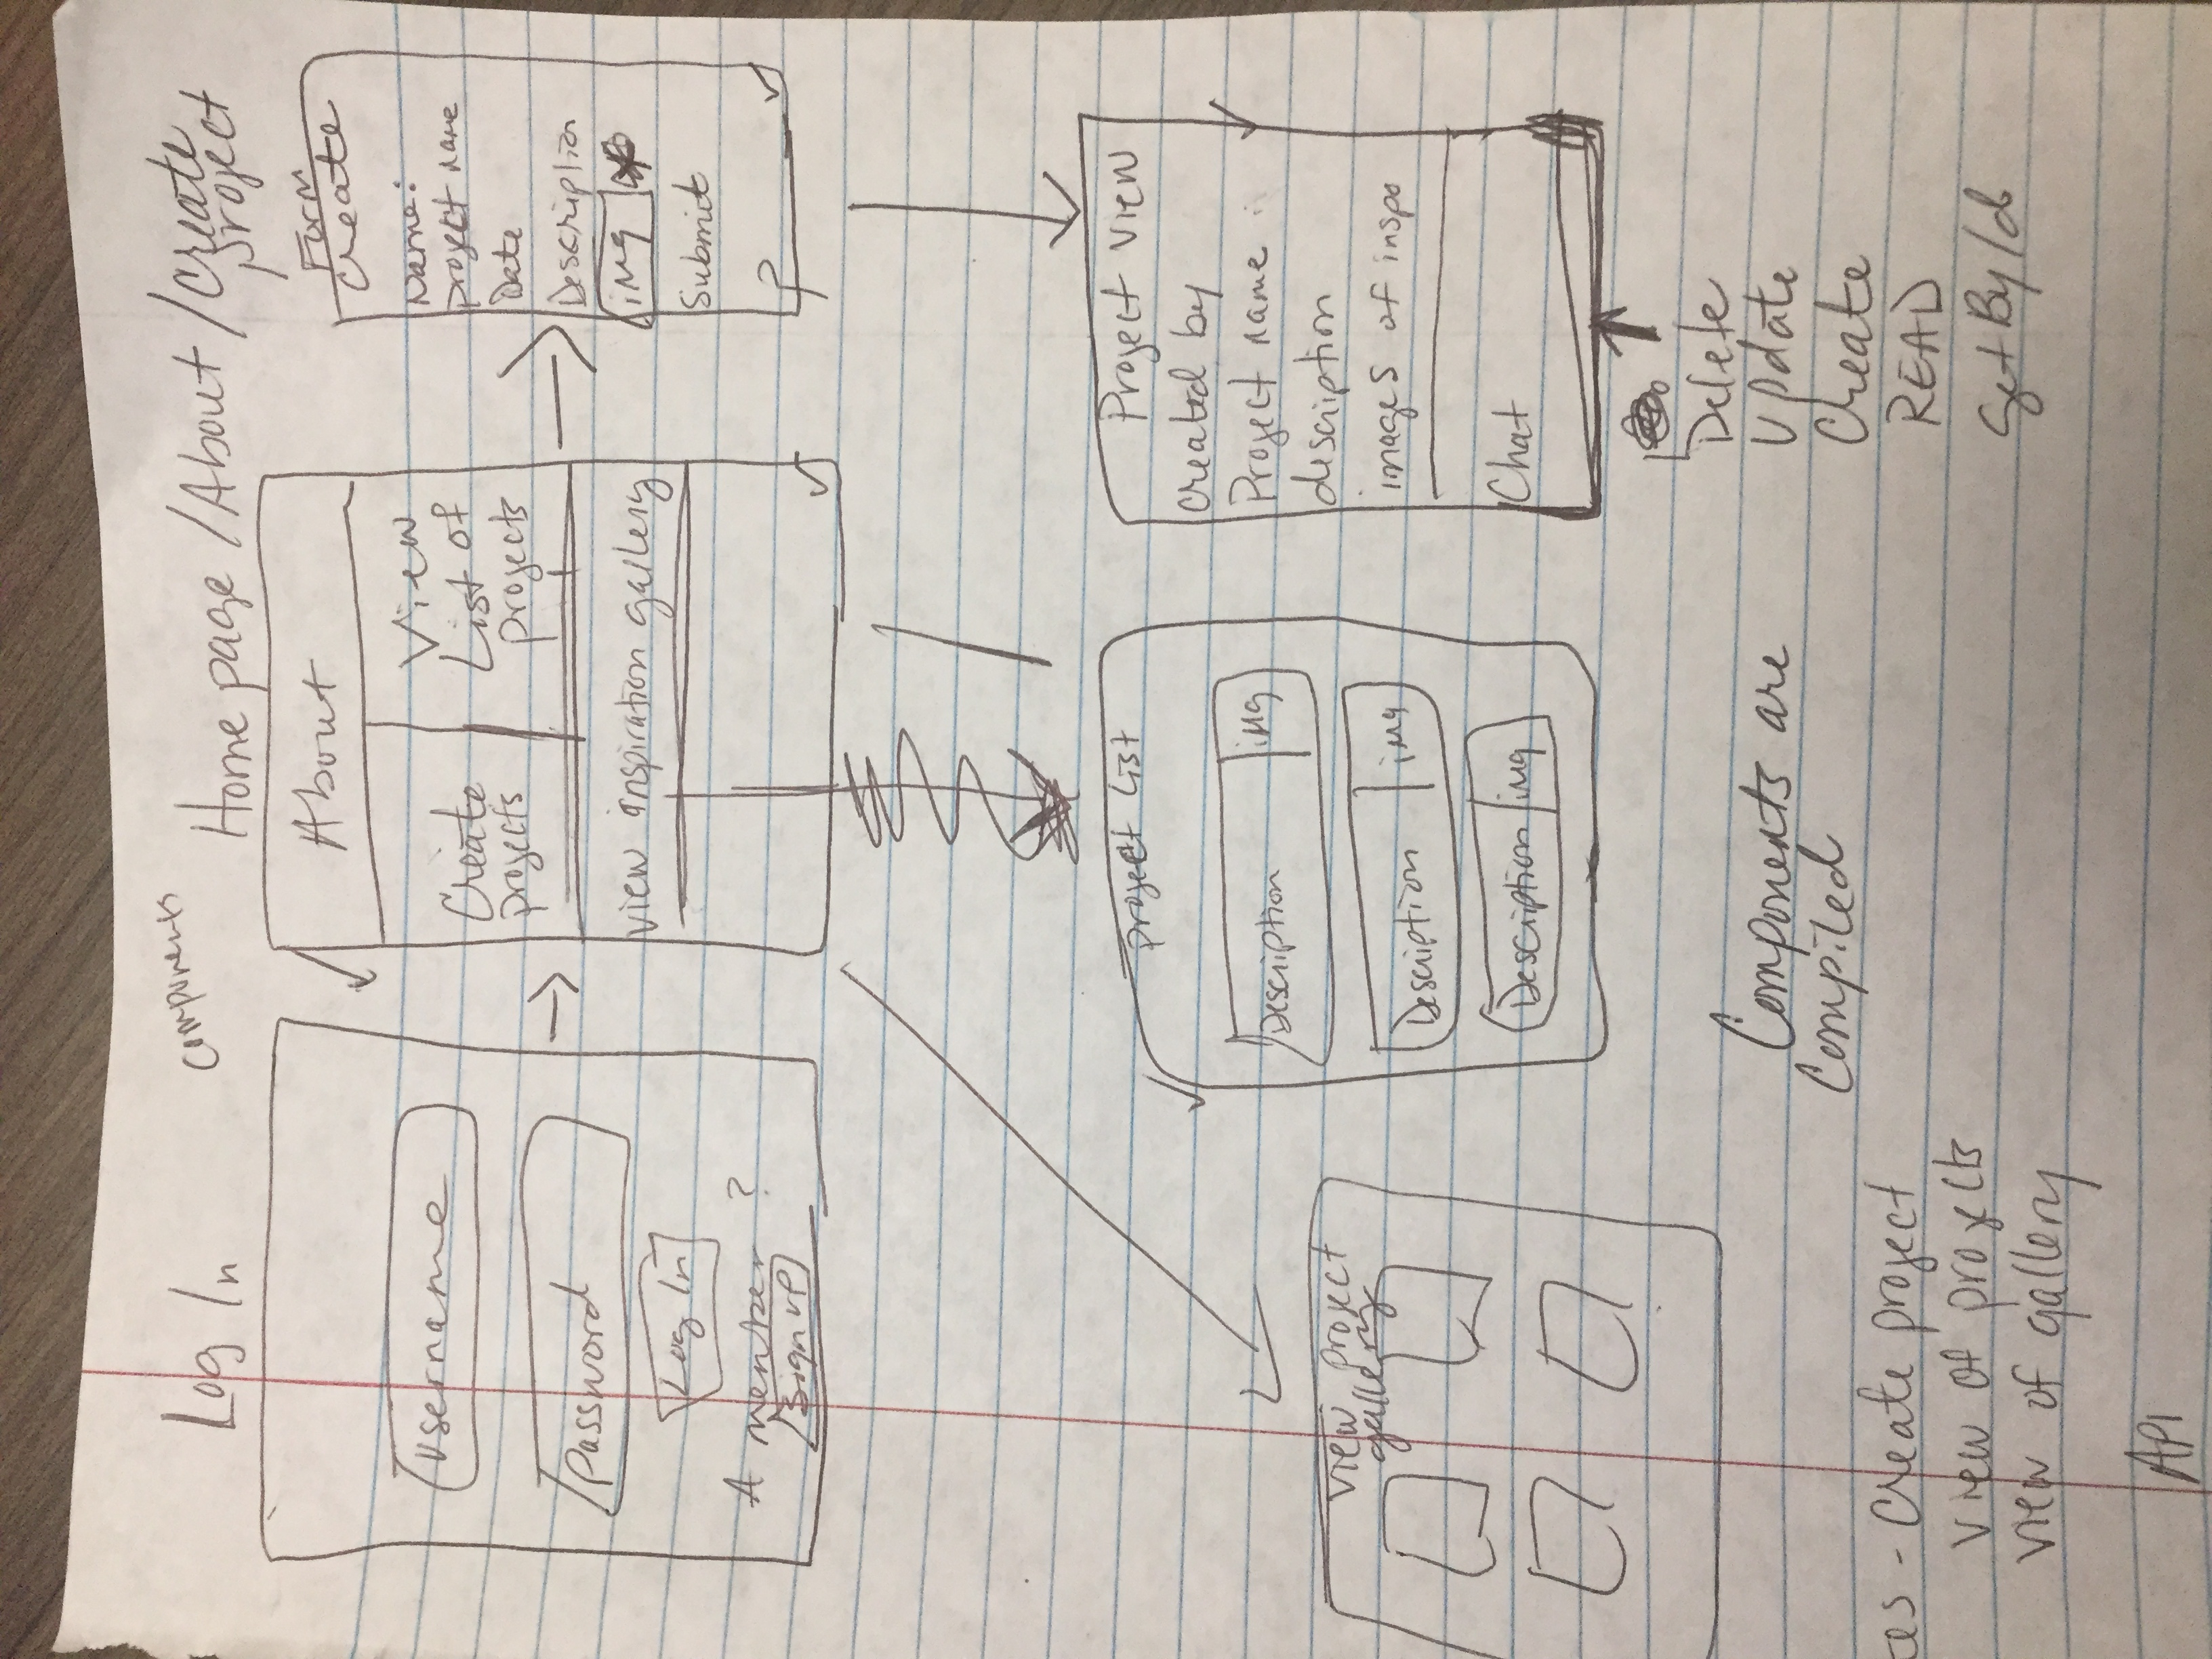 Log In
components
Home page / About / Create
project
Username
Password
Log In
A member ?
Sign up
About
Create
projects
View
List of
projects
view inspiration gallery
Form
Create
Name:
project name
Date
Description
img
Submit
View project
gallery
project List
Description img
Description img
Description img
Project view
created by
Project name :
description
images of inspo
Chat
Delete
Update
Create
READ
Get By Id
Components are
Compiled
- Create project
view of projects
view of gallery
API